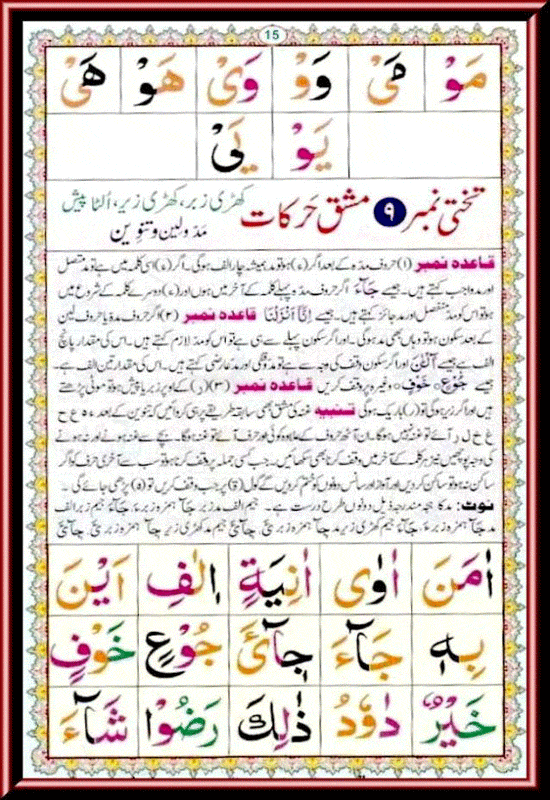 15
مَوْ مَیْ وَوْ وَیْ هَوْ هَیْ
یَوْ یَیْ
تختی نمبر ۹ مشق حَرکات کھڑی زبر، کھڑی زیر، اُلٹا پیش
مدّ ولین و تنوین
قاعدہ نمبر (۱) حروف مدّہ کے بعد اگر (ء) ہو تو مد ہمیشہ چار الف ہوگی۔ اگر (ء) اسی کلمہ میں ہے تو متصل
اور مد واجب کہتے ہیں۔ جیسے جَآءَ اگر حروف مدّہ پہلے کلمہ کے آخر میں ہوں اور (ء) دوسرے کلمہ کے شروع میں
ہو تو اس کو مد منفصل اور مد جائز کہتے ہیں۔ جیسے اِنَّآ اَنْزَلْنَا قاعدہ نمبر (۲) اگر حروف مدہ یا حروف لین
کے بعد سکون ہو تو وہاں بھی مد ہوگی۔ اور اگر سکون پہلے سے ہی ہے تو اس کو مد لازم کہتے ہیں۔ اس کی مقدار پانچ
الف ہے جیسے آٰلْـٰٔنَ اور اگر سکون وقف کی وجہ سے ہے تو مد وقفی اور مد عارضی کہتے ہیں۔ اس کی مقدار تین الف ہے۔
جیسے جُوْعٍ خَوْفٍ وغیرہ پر وقف کریں قاعدہ نمبر (۳) (ر) کے اوپر زبر یا پیش ہو تو موٹی پڑھتے
ہیں اور اگر زیر ہوگی تو (ر) باریک ہوگی تنبیہ غنہ کی مشق بھی سابقہ طریقے پر ہی کروائیں کہ تنوین کے بعد ء ہ ع ح
غ خ ل ر آئے تو غنہ نہیں ہوگا۔ ان آٹھ حروف کے علاوہ کوئی اور حرف آئے تو غنہ ہوگا۔ بچے سے غنہ ہونے اور نہ ہونے
کی وجہ پوچھیں نیز ہر کلمہ کے آخر میں وقف کرنا بھی سکھائیں۔ جب کسی جملہ پر وقف کرنا ہو تو سب سے آخری حرف کو اگر
ساکن نہ ہو تو ساکن کردیں اور آواز اور سانس دونوں کو ختم کردیں گے گول (ة) پر جب وقف کریں تو (ہ) پڑھی جائے گی۔
نوٹ: مد کا ہجہ مندرجہ ذیل دونوں طرح درست ہے۔ جیم الف مد زبر جَآ ہمزہ زبر ءَ، جَآءَ جیم زبر الف
مد جَآ ہمزہ زبر ءَ، جَآءَ
اٰمَنَ اٰوٰی اٰنِیَةٍ اٖلٰفِ اَیْنَ
بِهٖ جَآءَ جِآیْٓءَ جُوْعٍ خَوْفٍ
خَیْرٌ دَاوٗدُ ذٰلِكَ رَضُوْا شَآءَ